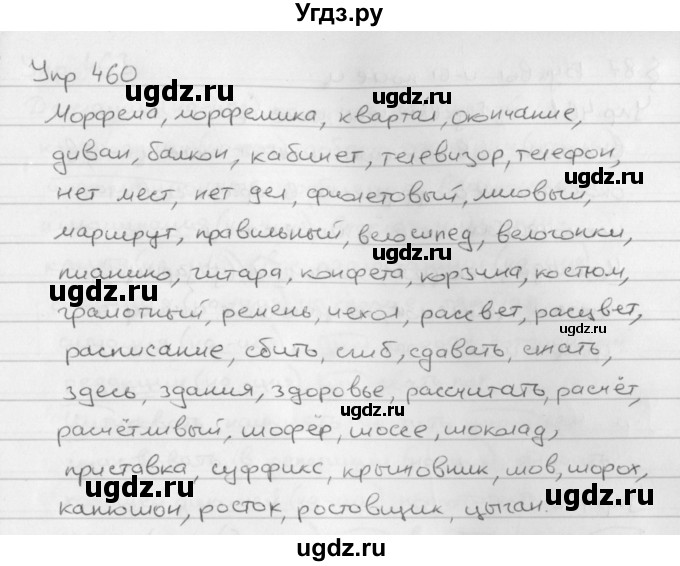 Угдз.ру
Упр 460
ugdz.ru ugdz.ru
Морфема, морфемика, квартал, окончание,
диван, балкон, кабинет, телевизор, телефон,
ugdz.ru
нет мест, нет дел, фиолетовый, лиловый,
маршрут, правильный, велосипед, велогонки,
ugdz.ru
пианино, гитара, конфета, корзина, костюм,
ugdz.ru
грамотный, ремень, чехол, рассвет, расцвет,
ugdz.ru
расписание, сбить, сгиб, сдавать, сжать,
здесь, здания, здоровье, рассчитать, расчёт,
ugdz.ru
расчётливый, шофёр, шоссе, шоколад,
приставка, суффикс, крыжовник, шов, шорох,
ugdz.ru ugdz.ru
капюшон, росток, ростовщик, цыган.
ugdz.ru